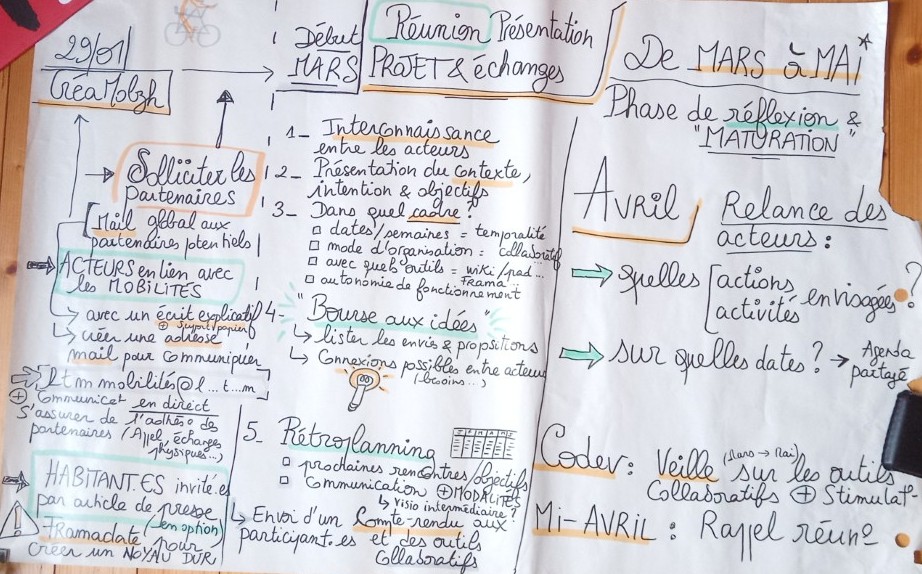 29/01
CréaMobzh
Solliciter les
partenaires
Mail global aux
partenaires potentiels
ACTEURS en lien avec
les MOBILITÉS
↳ avec un écrit explicatif
⊕ support/papier
↳ créer une adresse
mail pour communiquer
Ltm mobilités@l...t...m
⊕ Communicat° en direct
S'assurer de l'adhés° des
partenaires / (Appel, échanges
physiques...)
HABITANT.ES invité.es
par article de presse
(en option)
Framadate pour
créer un NOYAU DUR
Début
MARS
Réunion Présentation
PROJET & échanges
1_ Interconnaissance
entre les acteurs
2_ Présentation du contexte,
intention & objectifs
3_ Dans quel cadre ?
□ dates/semaines = temporalité
□ mode d'organisation = collaboratif
□ avec quels outils = wiki/pad...
Frama...
□ autonomie de fonctionnement
4_ "Bourse aux idées"
↳ lister les envies & propositions
↳ Connexions possibles entre acteurs
(besoins...)
5_ Rétroplanning
□ prochaines rencontres/objectifs
□ Communication ⊕ MOBILITÉS
↳ Visio intermédiaire ?
↳ Envoi d'un Compte-rendu aux
participant.es et des outils
Collaboratifs
De MARS à MAI*
Phase de réflexion &
"MATURATION"
Avril
Relance des
acteurs :
⇒ quelles [actions
activités envisagées ?
⇒ sur quelles dates ? → Agenda
partagé
Codev : Veille (Mars → Mai) sur les outils
Collaboratifs ⊕ Stimulat°
Mi-AVRIL : Rappel réun°